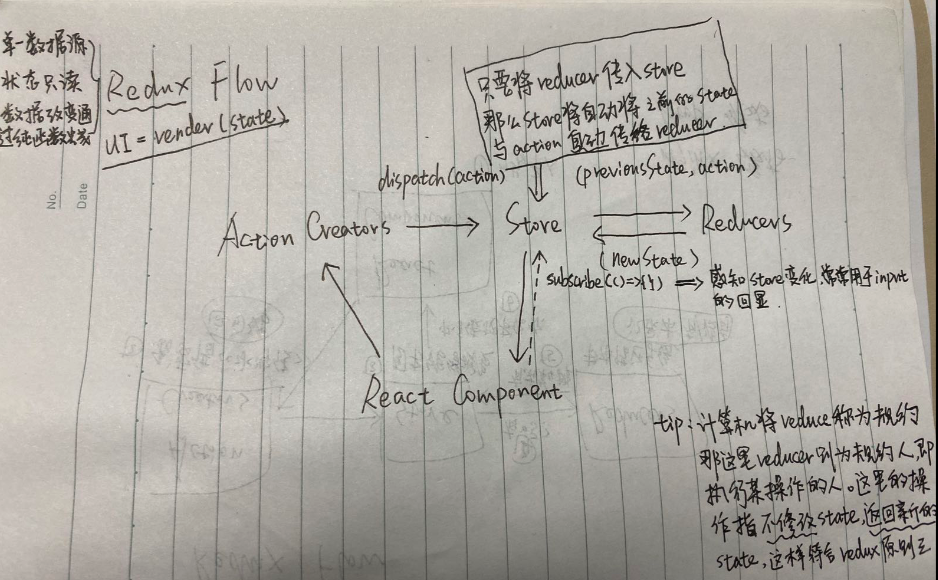 单一数据源
状态只读
数据改变通
过纯函数完成
Redux Flow
UI = render(state)
只要将reducer传入store
那么Store将自动将之前的state
与action自动传给reducer.
dispatch(action)
(previousState, action)
Action Creators
Store
Reducers
(newState)
subscribe(()=>{})
感知store变化,常常用于input
的回显.
React Component
tip:计算机将reduce称为规约
那这里reducer则为规约人,即
执行某操作的人。这里的操
作指不修改state,返回新的
state,这样符合redux原则三
No.
Date